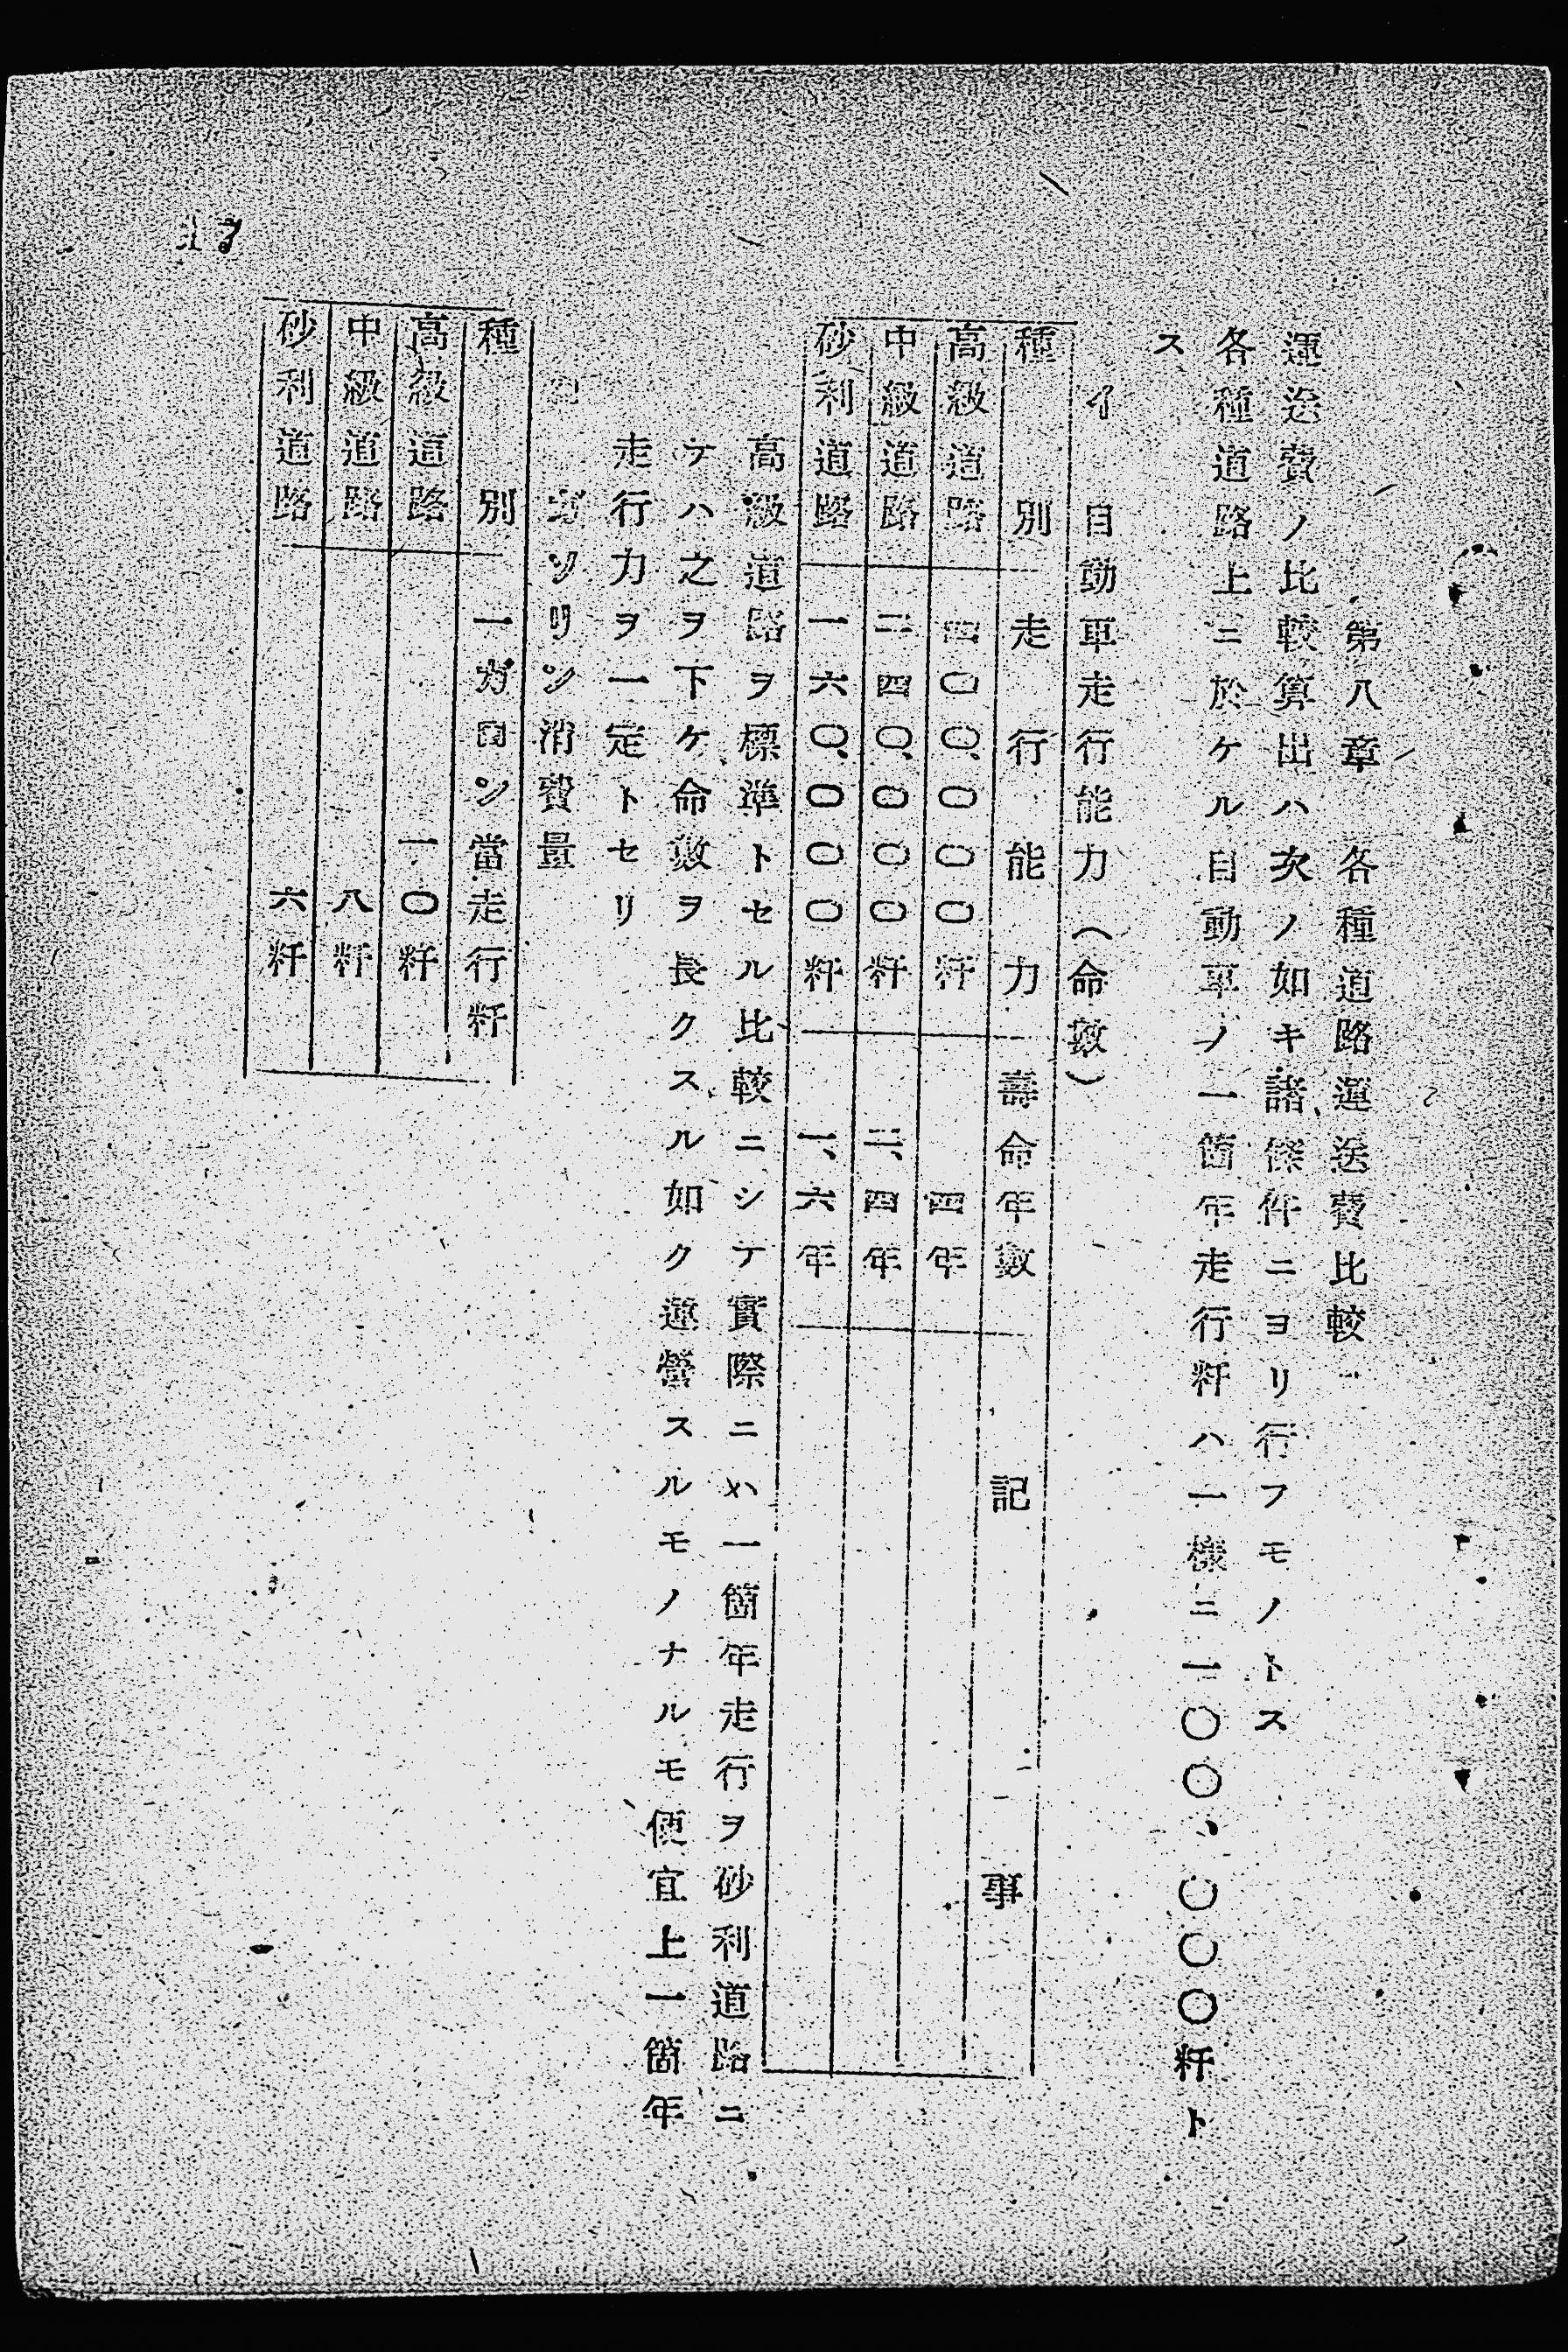 第八章　各種道路運送費比較
運送費ノ比較算出ハ次ノ如キ諸條件ニヨリ行フモノトス
各種道路上ニ於ケル自動車ノ一箇年走行粁ハ一樣ニ一〇〇、〇〇〇粁ト
ス
イ　自動車走行能力（命數）
種別　走行能力　壽命年數　記事
高級道路　四〇〇、〇〇〇粁　四年
中級道路　二四〇、〇〇〇粁　二、四年
砂利道路　一六〇、〇〇〇粁　一、六年
高級道路ヲ標準トセル比較ニシテ實際ニハ一箇年走行ヲ砂利道路ニ
テハ之ヲ下ケ命數ヲ長クスル如ク運營スルモノナルモ便宜上一箇年
走行力ヲ一定トセリ
ロ　ガソリン消費量
種別　一ガロン當走行粁
高級道路　一〇粁
中級道路　八粁
砂利道路　六粁
17